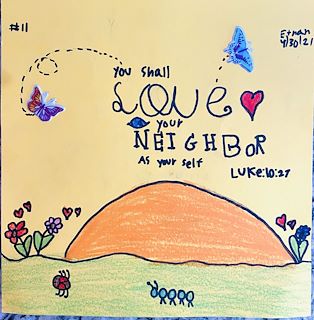 #11
Ethan
4/30/21
you shall
LOVE
your
NEIGHBOR
As your self
LUKE:10:27